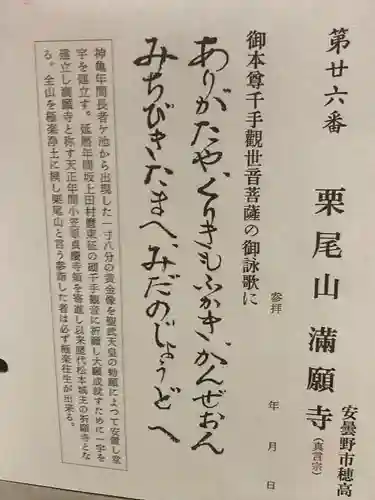 第廿六番　栗尾山　滿願寺
安曇野市穂高
(真言宗)
参拝　年　月　日
御本尊千手觀世音菩薩の御詠歌に
ありがたや、くりきもふかき、がんぜおん
みちびきたまへ、みだのじょうどへ
神亀年間長者ケ池から出現した一寸八分の黄金像を聖武天皇の勅願によつて安置し堂
宇を建立す。延暦年間坂上田村麿東征の砌千手観音に祈願し大願成就すために一宇を
建立し満願寺と称す天正年間小笠原貞慶寺領を寄進し以来歴代松本城主の祈願寺とな
る。全山を極楽浄土に模し栗尾山と言う参詣した者は必ず極楽往生が出来る。